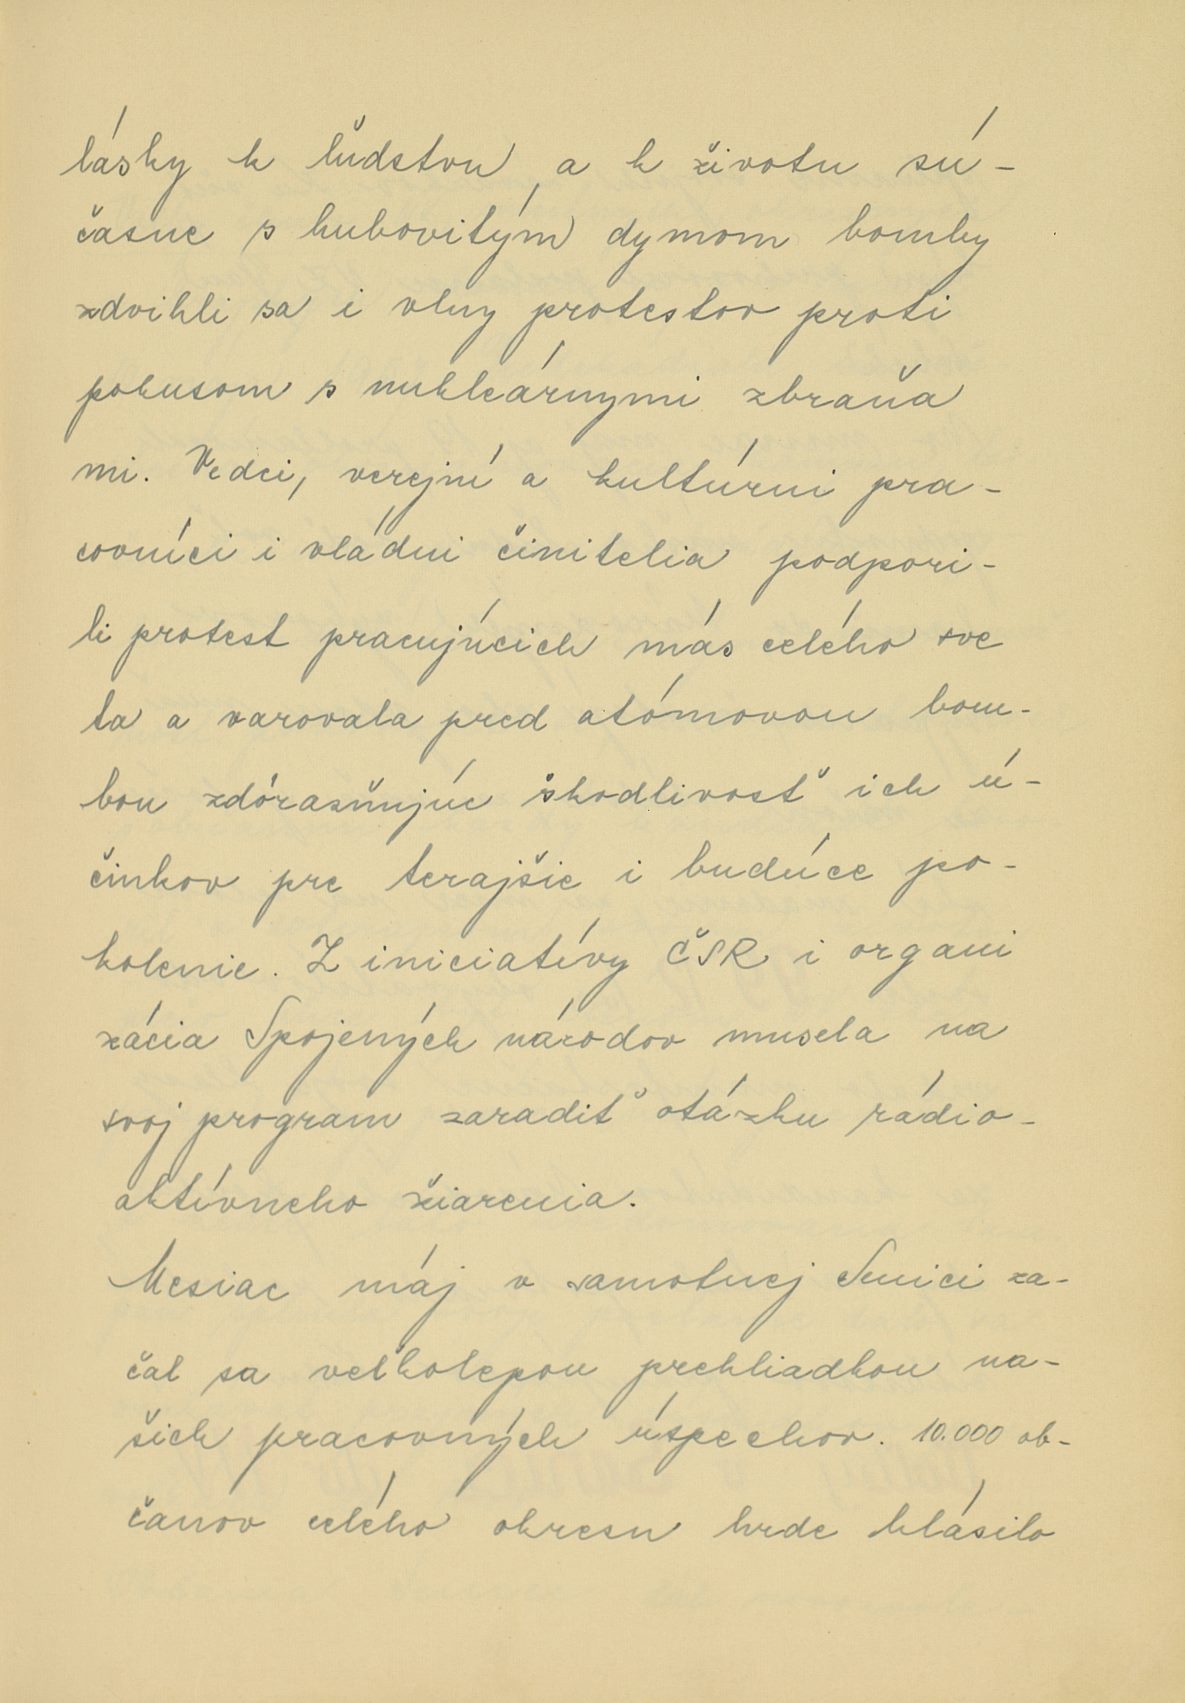 lásky k ľudstvu a k životu sú-
časne s hubovitým dymom bomby
zdvihli sa i vlny protestov proti
pokusom s nukleárnymi zbraňa
mi. Vedci, verejní a kultúrni pra-
covníci i vládni činitelia podpori-
li protest pracujúcich más celého sve
ta a varovala pred atómovou bom-
bou zdórazňujúc škodlivosť ich ú-
činkov pre terajšie i budúce po-
kolenie. Z iniciatívy ČSR i organi
zácia Spojených národov musela na
svoj program zaradiť otázku rádio-
aktívneho žiarenia.
Mesiac máj v samotnej Senici za-
čal sa veľkolepou prehliadkou na-
šich pracovných úspechov. 10.000 ob-
čanov celého okresu hrde hlásilo